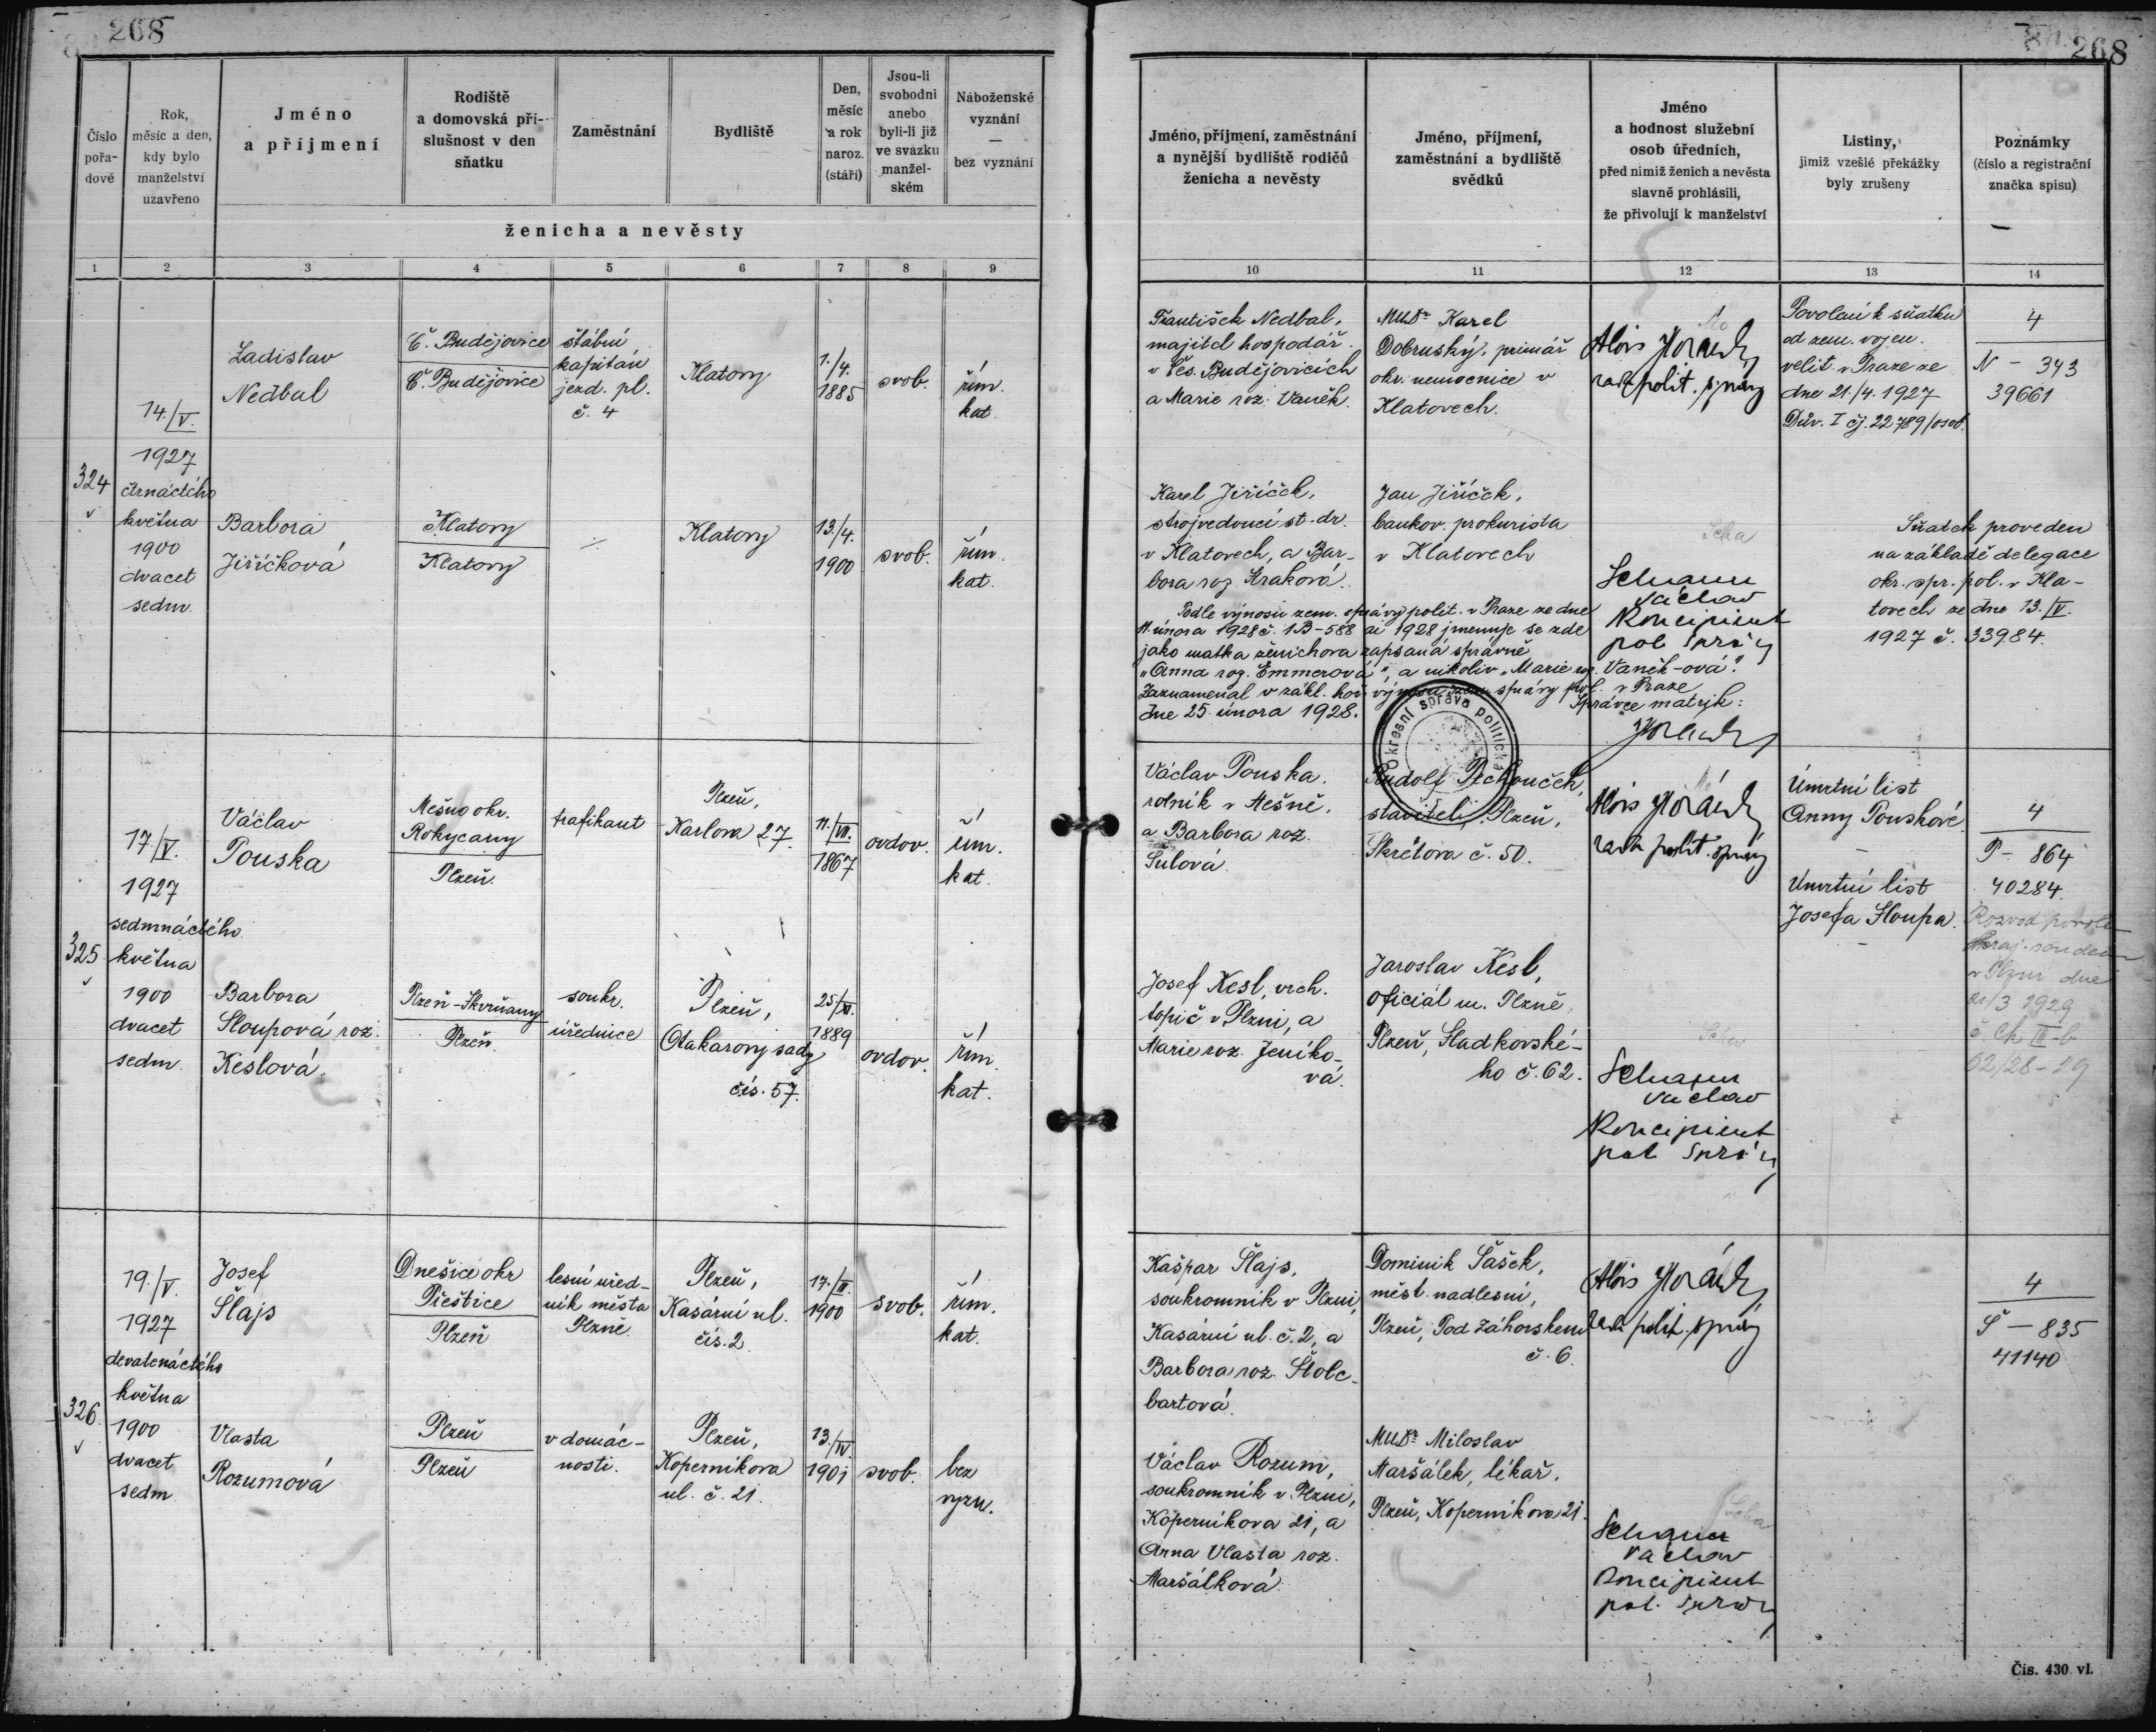 268
268
Číslo pořadové
Rok, měsíc a den, kdy bylo manželství uzavřeno
Jméno a příjmení
Rodiště a domovská příslušnost v den sňatku
Zaměstnání
Bydliště
Den, měsíc a rok naroz. (stáří)
Jsou-li svobodni anebo byli-li již ve svazku manželském
Náboženské vyznání — bez vyznání
ženicha a nevěsty
1 2 3 4 5 6 7 8 9
Jméno, příjmení, zaměstnání a nynější bydliště rodičů ženicha a nevěsty
Jméno, příjmení, zaměstnání a bydliště svědků
Jméno a hodnost služební osob úředních, před nimiž ženich a nevěsta slavně prohlásili, že přivolují k manželství
Listiny, jimiž vzešlé překážky byly zrušeny
Poznámky (číslo a registrační značka spisu)
10 11 12 13 14
324
14./V.
1927
čtrnáctého
května
1900
dvacet
sedm.
Ladislav
Nedbal
Č. Budějovice
Č. Budějovice
štábní
kapitán
jezd. pl.
č. 4
Klatovy
1./4.
1885
svob.
řím.
kat.
Barbora
Jiříčková
Klatovy
Klatovy
Klatovy
13./4.
1900
svob.
řím.
kat.
František Nedbal,
majitel hospodář.
v Čes. Budějovicích
a Marie roz. Vaněk.
MUDr Karel
Dobruský, primář
okr. nemocnice v
Klatovech.
Alois
rada polit. správy
Povolení k sňatku
od zem. vojen.
velit. v Praze ze
dne 21./4. 1927
Dův. I čj. 22789/osob.
4
N - 343
39661
Karel Jiříček,
strojvedoucí st. dr.
v Klatovech, a Bar-
bora roz. Kraková.
Jan Jiříček,
bankov. prokurista
v Klatovech
Václav
Koncipient
pol. správy
Sňatek proveden
na základě delegace
okr. spr. pol. v Kla-
tovech ze dne 13./V.
1927 č. 33984.
Podle výnosu zem. správy polit. v Praze ze dne
11. února 1928 č. 1B-588 ai 1928 jmenuje se zde
jako matka ženichova zapsaná správně
„Anna roz. Emmerová", a nikoliv „Marie roz. Vaněk-ová".
Zaznamenal v zákl. hoř. výnosu zem. správy pol. v Praze
dne 25. února 1928.
Správce matrik:
Okresní správa politická
325
17./V.
1927
sedmnáctého
května
1900
dvacet
sedm.
Václav
Pouska
Mešno okr.
Rokycany
Plzeň.
trafikant
Plzeň,
Karlova 27.
11./VII.
1867
ovdov.
řím.
kat.
Barbora
Sloupová roz.
Keslová.
Plzeň-Skvrňany
Plzeň.
soukr.
úřednice
Plzeň,
Otakarovy sady
čís. 57.
25./XI.
1889
ovdov.
řím.
kat.
Václav Pouska,
rolník v Mešně,
a Barbora roz.
Šulová.
Rudolf Pechouček,
stavitel, Plzeň,
Škrétova č. 50.
Alois
rada polit. správy
Úmrtní list
Anny Pouskové.
Úmrtní list
Josefa Sloupa.
4
P - 864
40284.
Rozvod povolen
kraj. soudem
v Plzni dne
1929
č. Ck III-b
62/28-29
Josef Kesl, vrch.
topič v Plzni, a
Marie roz. Jeníko-
vá.
Jaroslav Kesl,
oficiál m. Plzně,
Plzeň, Sladkovské-
ho č. 62.
Václav
Koncipient
pol. správy
326.
19./V.
1927
devatenáctého
května
1900
dvacet
sedm
Josef
Šlajs
Dnešice okr
Přeštice
Plzeň
lesní úřed-
ník města
Plzně.
Plzeň,
Kasární ul.
čís. 2
17./II.
1900
svob.
řím.
kat.
Vlasta
Rozumová
Plzeň
Plzeň
v domác-
nosti.
Plzeň,
Koperníkova
ul. č. 21.
13./IV.
1901
svob.
bez
vyzn.
Kašpar Šlajs,
soukromník v Plzni,
Kasární ul. č. 2, a
Barbora roz. Štolc-
bartová.
Dominik Šašek,
měst. nadlesní,
Plzeň, Pod Záhorskem
č. 6.
Alois
rada polit. správy
4
Š - 835
41140
Václav Rozum,
soukromník v Plzni,
Koperníkova 21, a
Anna Vlasta roz.
Maršálková.
MUDr Miloslav
Maršálek, lékař.
Plzeň, Koperníkova 21.
Václav
Koncipient
pol. správy
Čís. 430 vl.